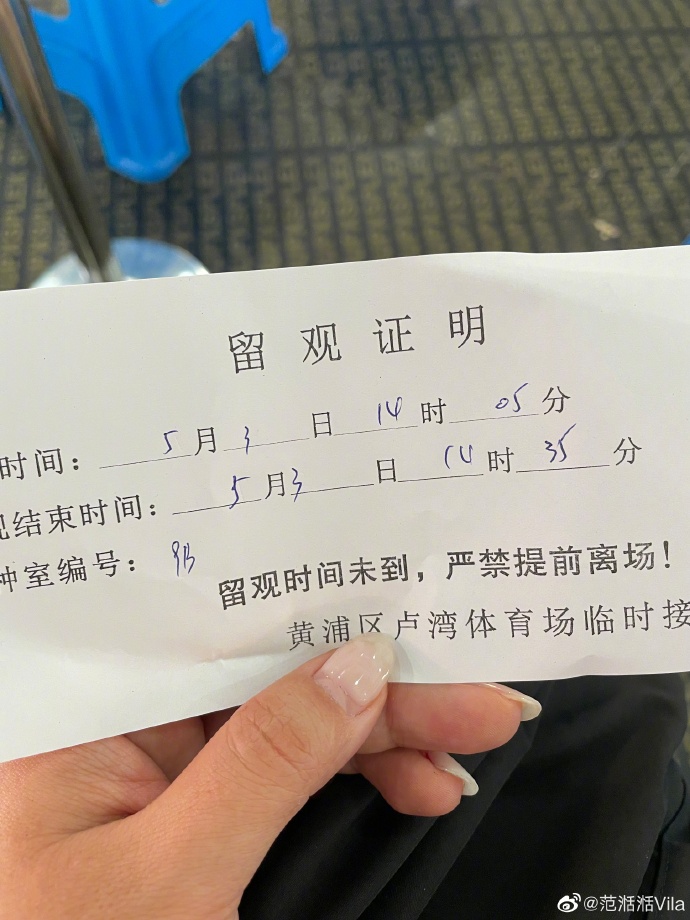 留观证明
时间：5月3日14时05分
结束时间：5月3日14时35分
室编号：9B
留观时间未到，严禁提前离场！
黄浦区卢湾体育场临时接
@范湉湉Vila